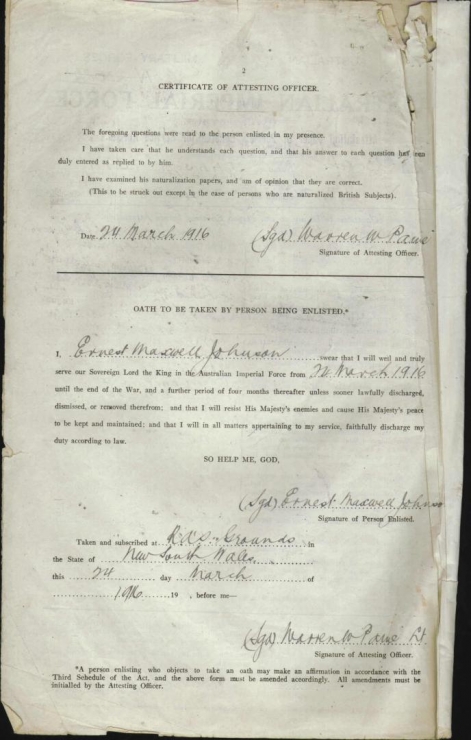 2
CERTIFICATE OF ATTESTING OFFICER.
The foregoing questions were read to the person enlisted in my presence.
I have taken care that he understands each question, and that his answer to each question has
duly entered as replied to by him.
I have examined his naturalization papers, and am of opinion that they are correct.
(This to be struck out except in the case of persons who are naturalized British Subjects).
Date 24 March 1916 (Sgd) Warren W
Signature of Attesting Officer.
OATH TO BE TAKEN BY PERSON BEING ENLISTED.*
I, Ernest Maxwell Johnson swear that I will well and truly
serve our Sovereign Lord the King in the Australian Imperial Force from 24 March 1916
until the end of the War, and a further period of four months thereafter unless sooner lawfully discharged,
dismissed, or removed therefrom; and that I will resist His Majesty's enemies and cause His Majesty's peace
to be kept and maintained; and that I will in all matters appertaining to my service, faithfully discharge my
duty according to law.
SO HELP ME, GOD.
(Sgd) Ernest Maxwell Johnso
Signature of Person Enlisted.
Taken and subscribed at R.A.S. Grounds in
the State of New South Wales
this 24 day March of
1916 19 , before me—
(Sgd) Warren W Lt
Signature of Attesting Officer.
*A person enlisting who objects to take an oath may make an affirmation in accordance with the
Third Schedule of the Act, and the above form must be amended accordingly. All amendments must be
initialled by the Attesting Officer.